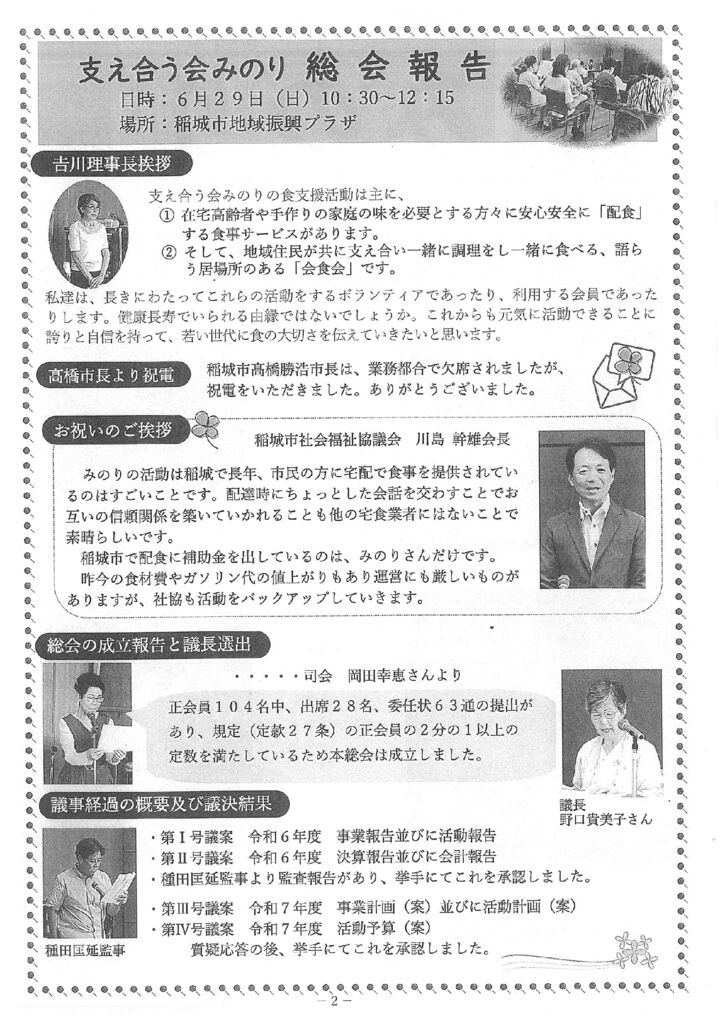 支え合う会みのり 総会報告
日時：６月２９日（日）10：30～12：15
場所：稲城市地域振興プラザ
吉川理事長挨拶
支え合う会みのりの食支援活動は主に、
① 在宅高齢者や手作りの家庭の味を必要とする方々に安心安全に「配食」
する食事サービスがあります。
② そして、地域住民が共に支え合い一緒に調理をし一緒に食べる、語ら
う居場所のある「会食会」です。
私達は、長きにわたってこれらの活動をするボランティアであったり、利用する会員であった
りします。健康長寿でいられる由縁ではないでしょうか。これからも元気に活動できることに
誇りと自信を持って、若い世代に食の大切さを伝えていきたいと思います。
髙橋市長より祝電
稲城市髙橋勝浩市長は、業務都合で欠席されましたが、
祝電をいただきました。ありがとうございました。
お祝いのご挨拶
稲城市社会福祉協議会　川島 幹雄会長
みのりの活動は稲城で長年、市民の方に宅配で食事を提供されてい
るのはすごいことです。配達時にちょっとした会話を交わすことでお
互いの信頼関係を築いていかれることも他の宅食業者にはないことで
素晴らしいです。
稲城市で配食に補助金を出しているのは、みのりさんだけです。
昨今の食材費やガソリン代の値上がりもあり運営にも厳しいものが
ありますが、社協も活動をバックアップしていきます。
総会の成立報告と議長選出
・・・・・司会　岡田幸恵さんより
正会員１０４名中、出席２８名、委任状６３通の提出が
あり、規定（定款２７条）の正会員の２分の１以上の
定数を満たしているため本総会は成立しました。
議長
野口貴美子さん
議事経過の概要及び議決結果
・第Ⅰ号議案　令和６年度　事業報告並びに活動報告
・第Ⅱ号議案　令和６年度　決算報告並びに会計報告
・種田匡延監事より監査報告があり、挙手にてこれを承認しました。
・第Ⅲ号議案　令和７年度　事業計画（案）並びに活動計画（案）
・第Ⅳ号議案　令和７年度　活動予算（案）
質疑応答の後、挙手にてこれを承認しました。
種田匡延監事
－2－